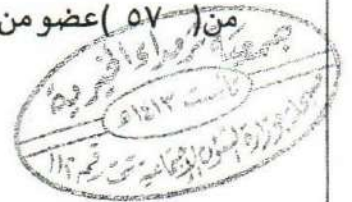 من( ٥٧ )عضو من
جمعية مرداء الخيرية
تأسست ١٤١٣هـ
مسجلة بوزارة الشؤون الاجتماعية تحت رقم ١١٨